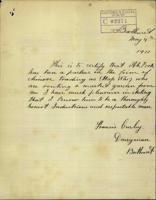 Bathurst
May 9th
1911
This is to certify that Ah Poch
has been a partner in the firm of
Chinese trading as (Hop War) who
are renting a market garden from
me I have much pleasure in stating
that I know him to be a thoroughly
honest Industrious and respectable man
Francis Curley
Dairyman
Bathurst